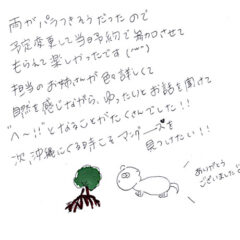 雨がパラつきそうだったので
予定変更して当日予約で参加させて
もられて楽しかったです(^-^)
担当のお姉さんが詳しくて
自然を感じながら、ゆったりとお話を聞けて
"へ〜!!"となることがたくさんでした!!
次 沖縄にくる時こそマングースを
見つけたい!!
ありがとう
ございました